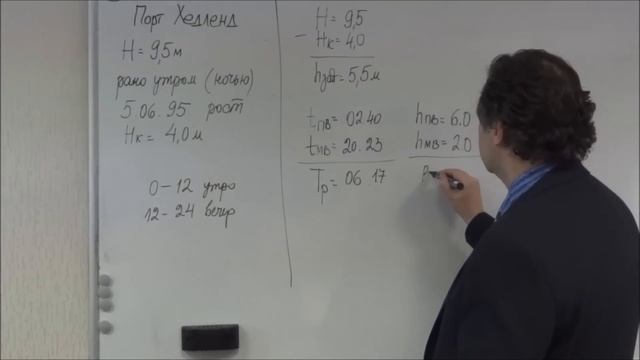 Порт Хедленд
H = 9,5 м
рано утром (ночью)
5.06.95 рост
Hк = 4,0 м
0 – 12 утро
12 – 24 вечер
H = 9,5
– Hк = 4,0
= 5,5 м
tпв = 02 40
tмв = 20.23
Tр = 06 17
hпв = 6.0
hмв = 2.0